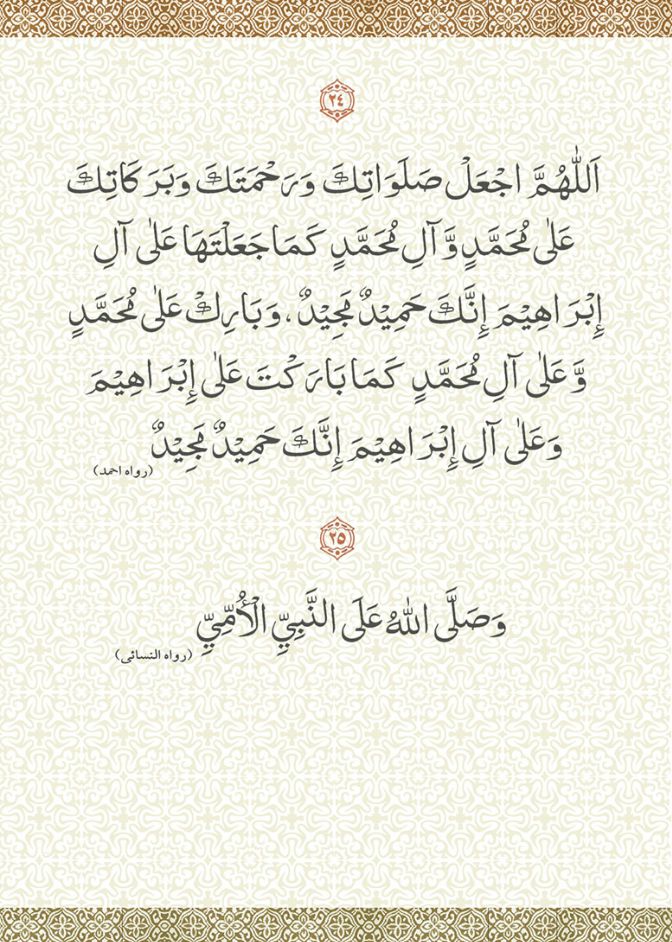 ٢٤
اَللّٰهُمَّ اجْعَلْ صَلَوَاتِكَ وَرَحْمَتَكَ وَبَرَكَاتِكَ
عَلٰى مُحَمَّدٍ وَّآلِ مُحَمَّدٍ كَمَا جَعَلْتَهَا عَلٰى آلِ
إِبْرَاهِيْمَ إِنَّكَ حَمِيْدٌ مَّجِيْدٌ، وَبَارِكْ عَلٰى مُحَمَّدٍ
وَّعَلٰى آلِ مُحَمَّدٍ كَمَا بَارَكْتَ عَلٰى إِبْرَاهِيْمَ
وَعَلٰى آلِ إِبْرَاهِيْمَ إِنَّكَ حَمِيْدٌ مَّجِيْدٌ (رواه احمد)
٢٥
وَصَلَّى اللّٰهُ عَلَى النَّبِيِّ الْأُمِّيِّ (رواه النسائی)